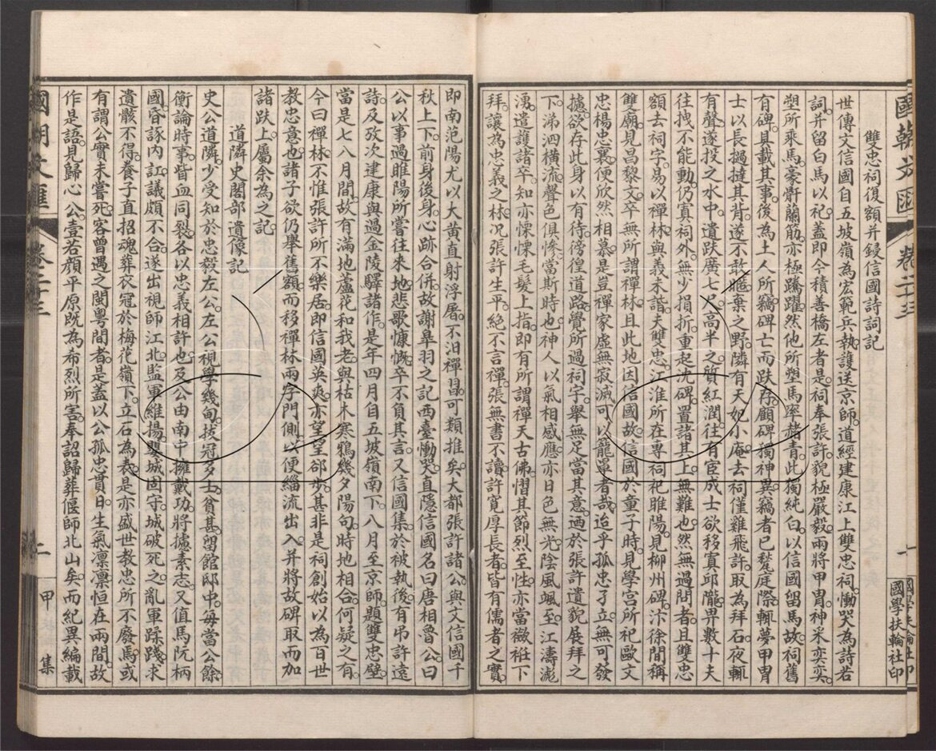 國朝文匯
卷二十三
一
國學扶輪社印
雙忠祠復額并錄信國詩詞記
世傳文信國自五坡嶺為宏範兵執護送京師。道經建康江上雙忠祠。慟哭為詩若
詞。并留白馬以祀。蓋即今積善橋左者是。祠奉張許。貌極嚴毅。兩將甲胄。神米奕奕。
塑所乘馬。豪骭蘭筋。亦極蹻躍。然他所塑馬率諸青。此獨純白。以信國留馬故。祠舊
有碑。具載其事。後為土人所竊。碑亡而趺存。顧碑獨神異。竊者已甃庭際。輒夢甲胄
士以長撾撻其背。遂不敢。㢮棄之野。隣有天妃小庵。去祠僅雞飛許。取為拜石。夜輒
有聲。遂投之水中。遺趺廣七尺。高半之。質紅潤。往有宦成士欲移寘邱隴。畀數十夫
往拽不能動。仍寘祠外。無少損折。重起沈碑置諸其上無難也。然無過問者。且雙忠
額去祠字。易以禪林。與義未諧。夫雙忠。江淮所在專祠。祀睢陽。見柳州碑。汴徐間稱
雙廟。見昌黎文。卒無所謂禪林。且此地因信國故。信國於童子時。見學宮所祀歐文
忠楊忠襄。便欣然相慕。是豈禪家虛無寂滅。可以籠單者哉。迨乎孤忠了立。無可發
攄。欲存此身以有待。徬徨道路。覺所過祠宇。舉無足當其意。迺於張許遺貌。展拜之
下。涕泗橫流。聲色俱慘。當斯時也。神人以氣相感應。亦日色無光。陰風颯至。江濤澎
湧。遣護諸卒。知亦慄慄毛髮上指。即有所謂禪天古佛。慴其節烈至性。亦當斂裾下
拜。讓為忠義之林。況張許生平。絕不言禪。張無書不讀。許寬厚長者。皆有儒者之實。
即南范陽尤以大黃直射浮屠。不汨禪詣可類推矣。大都張許諸公與文信國千
秋上下。前身後身。心跡合併。故謝皋羽之記西臺慟哭。直隱信國名曰唐相魯公曰
公以事過睢陽所嘗往來地。悲歌慷慨。卒不負其言。又信國集。於被執後有弔許遠
詩。及攷次建康與過金陵驛諸作。是年四月自五坡嶺南下。八月至京師。題雙忠壁。
當是七八月間。故有滿地蘆花和我老。與枯木寒鴉幾夕陽句。時地相合。何疑之有。
今曰禪林。不惟張許所不樂居。即信國英爽。亦望望郤步。甚非是祠創始以為百世
教忠意也。諸子欲仍舉舊額。而移禪林兩字門側。以便緇流出入。并將故碑取而加
諸趺上。屬余為之記。
道隣史閣部遺像記
史公道隣。少受知於忠毅左公。左公視學幾甸。拔冠多士。貧甚。留館邸中。每當公餘
衡論時事。皆血同裂。各以忠義相許也。及公由南中擁戴功。將攄素志。又值馬阮柄
國。昏諑內訌。議頗不合。遂出視師江北。監軍維揚。嬰城固守。城破死之。亂軍蹂踐。求
遺骸不得。養子直招魂葬衣冠於梅花嶺下。立石為表。是亦盛世教忠所不廢焉。或
有謂公實未嘗死。客曾遇之閩粵間者。是蓋以公孤忠貫日。生氣凜凜恒在兩間。故
作是語。見歸心公壹若顏平原既為希烈所害。奉詔歸葬偃師北山矣。而紀異編載
國朝文匯
卷二十三
二
甲集